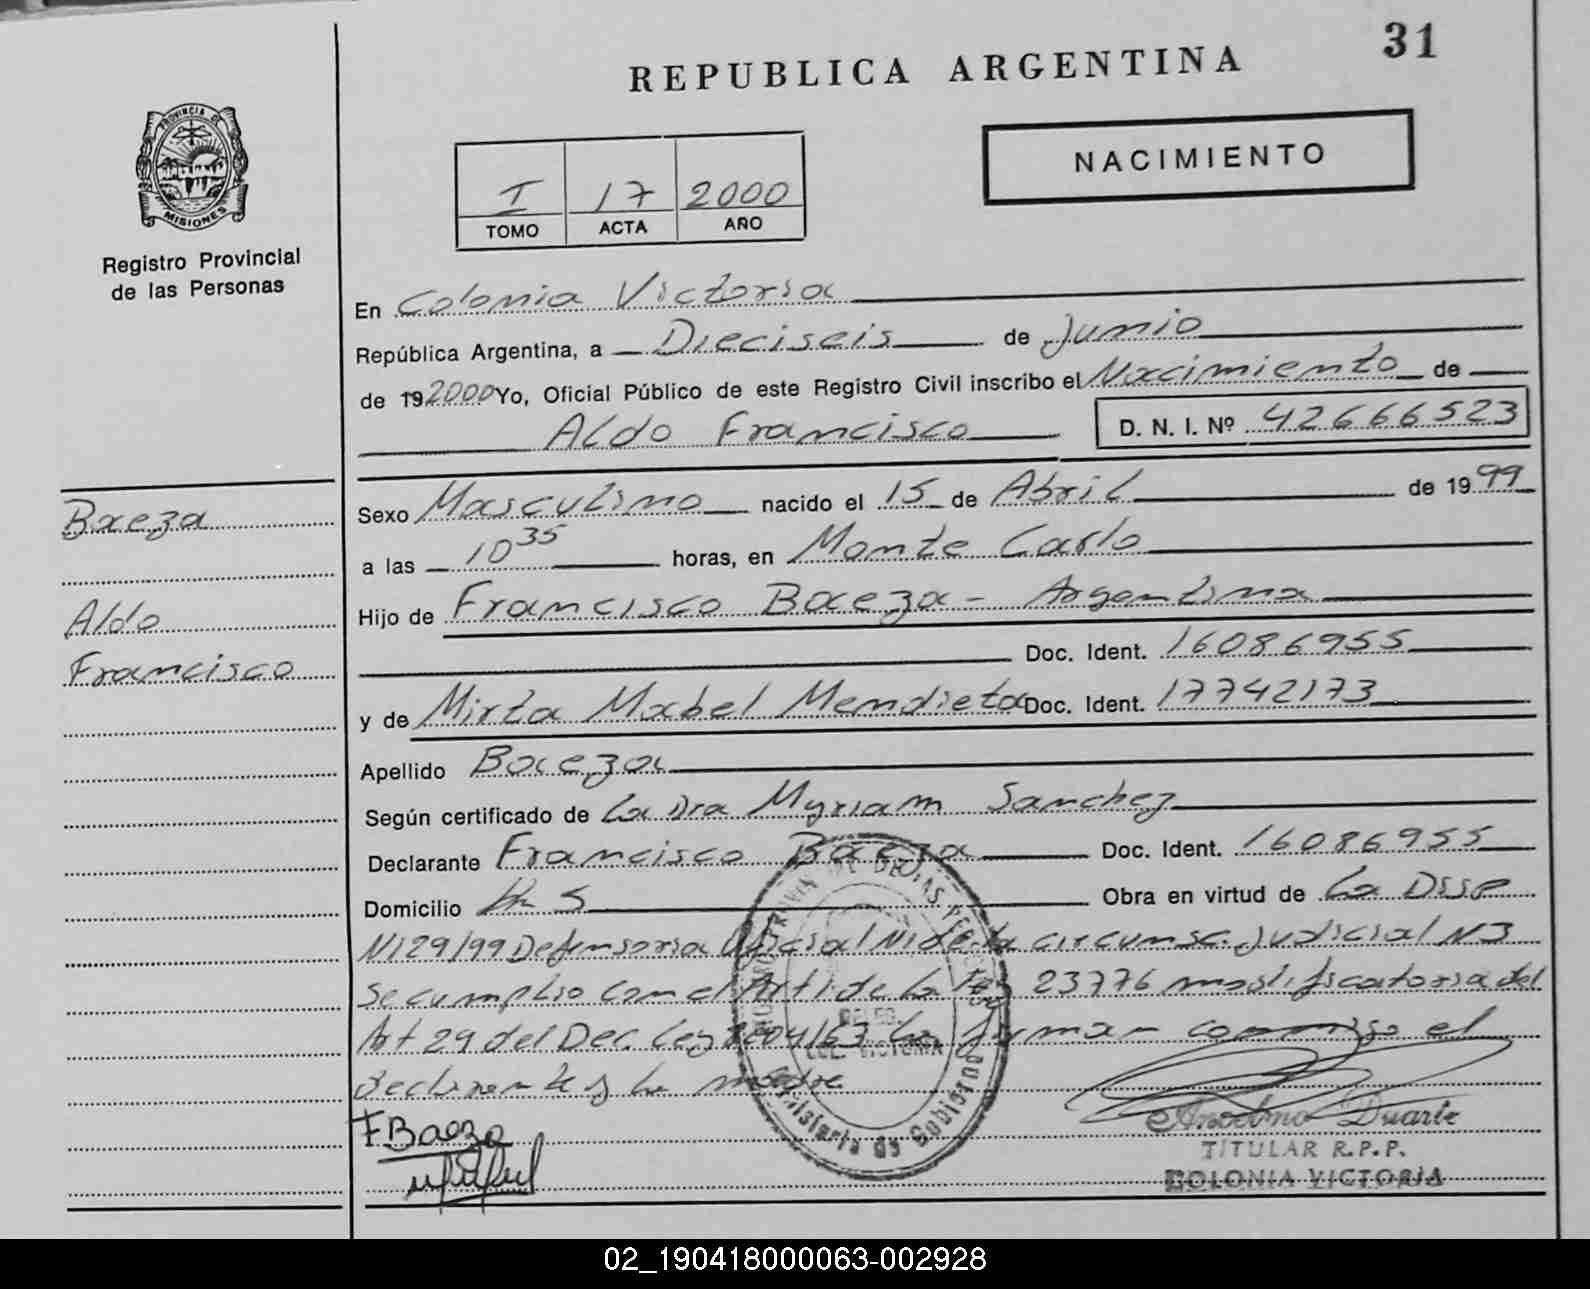 31
REPUBLICA ARGENTINA
NACIMIENTO
PROVINCIA DE
MISIONES
Registro Provincial
de las Personas
I 17 2000
TOMO ACTA AÑO
En Colonia Victoria
República Argentina, a Dieciseis de Junio
de 192000 Yo, Oficial Público de este Registro Civil inscribo el Nacimiento de
Aldo Francisco D. N. I. Nº 42666523
Baeza
Aldo
Francisco
Sexo Masculino nacido el 15 de Abril de 1999
a las 10 35 horas, en Monte Carlo
Hijo de Francisco Baeza - Argentina
Doc. Ident. 16086955
y de Mirta Mabel Mendieta Doc. Ident. 17742173
Apellido Baeza
Según certificado de La Dra Myriam Sanchez
Declarante Francisco Baeza Doc. Ident. 16086955
Domicilio Obra en virtud de La
N129/99 Defensoria Oficial N1 de la circunsc. Judicial N3
se cumplio con el Art 1 de la Ley 23776 modificatoria del
Art 29 del Dec. Ley 8204/63 La firman conmigo el
Declarante y la madre
F. Baeza
DELEG.
COL. VICTORIA
Ministerio de Gobierno
Anselmo Duarte
TITULAR R.P.P.
COLONIA VICTORIA
02_190418000063-002928